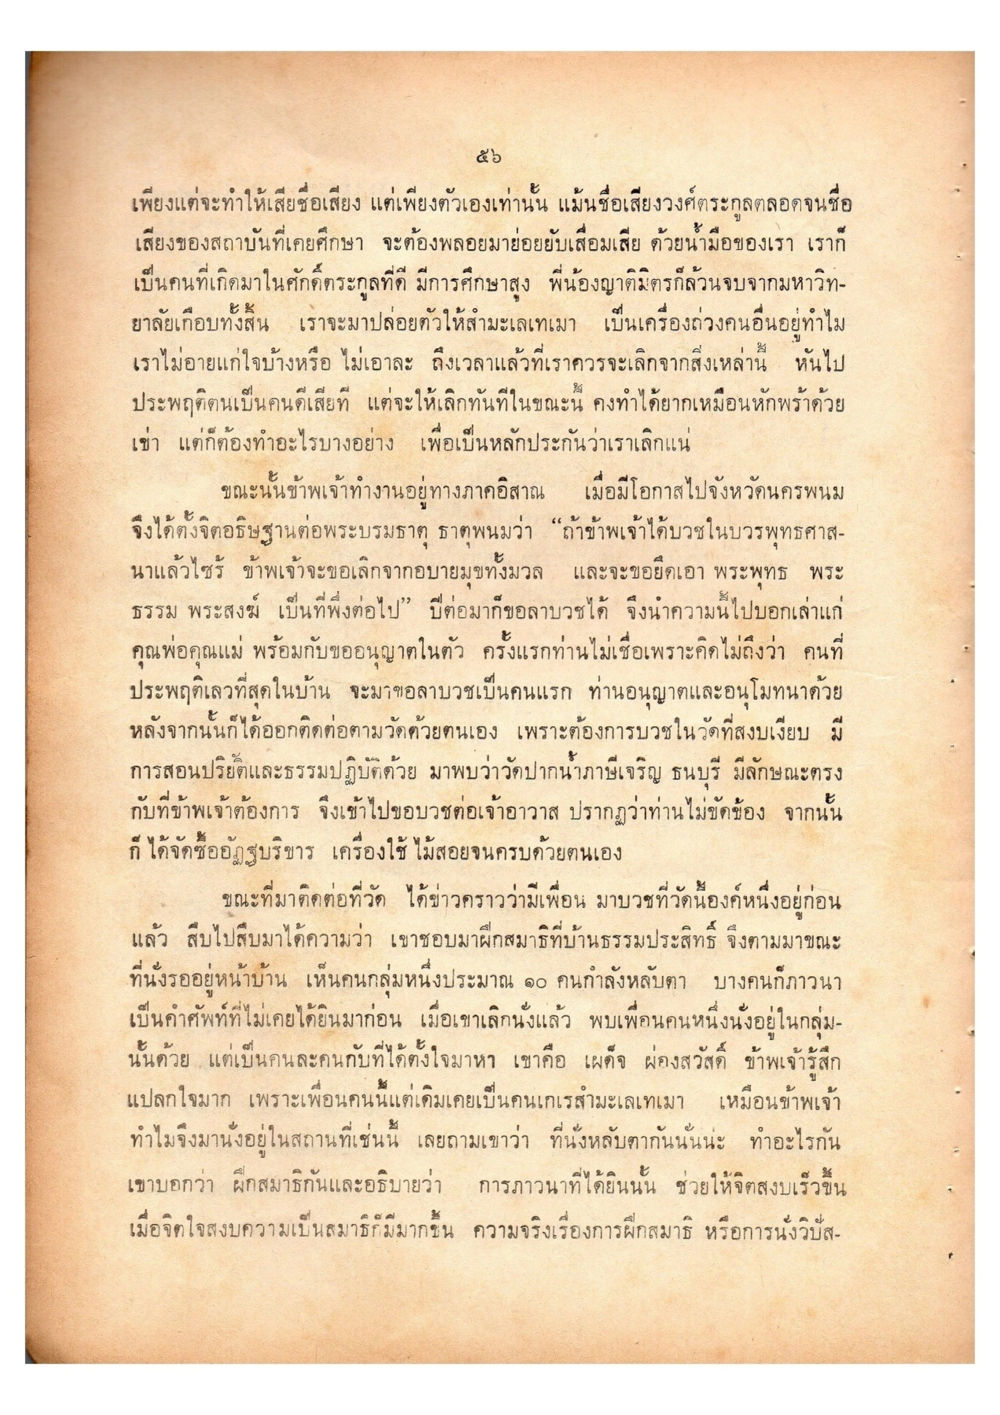 ๕๖
เพียงแต่จะทำให้เสียชื่อเสียง แต่เพียงตัวเองเท่านั้น แม้นชื่อเสียงวงศ์ตระกูลตลอดจนชื่อ
เสียงของสถาบันที่เคยศึกษา จะต้องพลอยมาย่อยยับเสื่อมเสีย ด้วยน้ำมือของเรา เราก็
เป็นคนที่เกิดมาในศักดิ์ตระกูลที่ดี มีการศึกษาสูง พี่น้องญาติมิตรก็ล้วนจบจากมหาวิท-
ยาลัยเกือบทั้งสิ้น เราจะมาปล่อยตัวให้สำมะเลเทเมา เป็นเครื่องถ่วงคนอื่นอยู่ทำไม
เราไม่อายแก่ใจบ้างหรือ ไม่เอาละ ถึงเวลาแล้วที่เราควรจะเลิกจากสิ่งเหล่านี้ หันไป
ประพฤติตนเป็นคนดีเสียที แต่จะให้เลิกทันทีในขณะนี้ คงทำได้ยากเหมือนหักพร้าด้วย
เข่า แต่ก็ต้องทำอะไรบางอย่าง เพื่อเป็นหลักประกันว่าเราเลิกแน่
ขณะนั้นข้าพเจ้าทำงานอยู่ทางภาคอิสาณ เมื่อมีโอกาสไปจังหวัดนครพนม
จึงได้ตั้งจิตอธิษฐานต่อพระบรมธาตุ ธาตุพนมว่า “ถ้าข้าพเจ้าได้บวชในบวรพุทธศาส-
นาแล้วไซร้ ข้าพเจ้าจะขอเลิกจากอบายมุขทั้งมวล และจะขอยึดเอา พระพุทธ พระ
ธรรม พระสงฆ์ เป็นที่พึ่งต่อไป” ปีต่อมาก็ขอลาบวชได้ จึงนำความนี้ไปบอกเล่าแก่
คุณพ่อคุณแม่ พร้อมกับขออนุญาตในตัว ครั้งแรกท่านไม่เชื่อเพราะคิดไม่ถึงว่า คนที่
ประพฤติเลวที่สุดในบ้าน จะมาขอลาบวชเป็นคนแรก ท่านอนุญาตและอนุโมทนาด้วย
หลังจากนั้นก็ได้ออกติดต่อตามวัดด้วยตนเอง เพราะต้องการบวชในวัดที่สงบเงียบ มี
การสอนปริยัติและธรรมปฏิบัติด้วย มาพบว่าวัดปากน้ำภาษีเจริญ ธนบุรี มีลักษณะตรง
กับที่ข้าพเจ้าต้องการ จึงเข้าไปขอบวชต่อเจ้าอาวาส ปรากฏว่าท่านไม่ขัดข้อง จากนั้น
ก็ ได้จัดซื้ออัฏฐบริขาร เครื่องใช้ ไม้สอยจนครบด้วยตนเอง
ขณะที่มาติดต่อที่วัด ได้ข่าวคราวว่ามีเพื่อน มาบวชที่วัดนี้องค์หนึ่งอยู่ก่อน
แล้ว สืบไปสืบมาได้ความว่า เขาชอบมาฝึกสมาธิที่บ้านธรรมประสิทธิ์ จึงตามมาขณะ
ที่นั่งรออยู่หน้าบ้าน เห็นคนกลุ่มหนึ่งประมาณ ๑๐ คนกำลังหลับตา บางคนก็ภาวนา
เป็นคำศัพท์ที่ไม่เคยได้ยินมาก่อน เมื่อเขาเลิกนั่งแล้ว พบเพื่อนคนหนึ่งนั่งอยู่ในกลุ่ม-
นั้นด้วย แต่เป็นคนละคนกับที่ได้ตั้งใจมาหา เขาคือ เผด็จ ผ่องสวัสดิ์ ข้าพเจ้ารู้สึก
แปลกใจมาก เพราะเพื่อนคนนี้แต่เดิมเคยเป็นคนเกเรสำมะเลเทเมา เหมือนข้าพเจ้า
ทำไมจึงมานั่งอยู่ในสถานที่เช่นนี้ เลยถามเขาว่า ที่นั่งหลับตากันนั่นน่ะ ทำอะไรกัน
เขาบอกว่า ฝึกสมาธิกันและอธิบายว่า การภาวนาที่ได้ยินนั้น ช่วยให้จิตสงบเร็วขึ้น
เมื่อจิตใจสงบความเป็นสมาธิก็มีมากขึ้น ความจริงเรื่องการฝึกสมาธิ หรือการนั่งวิปัส-